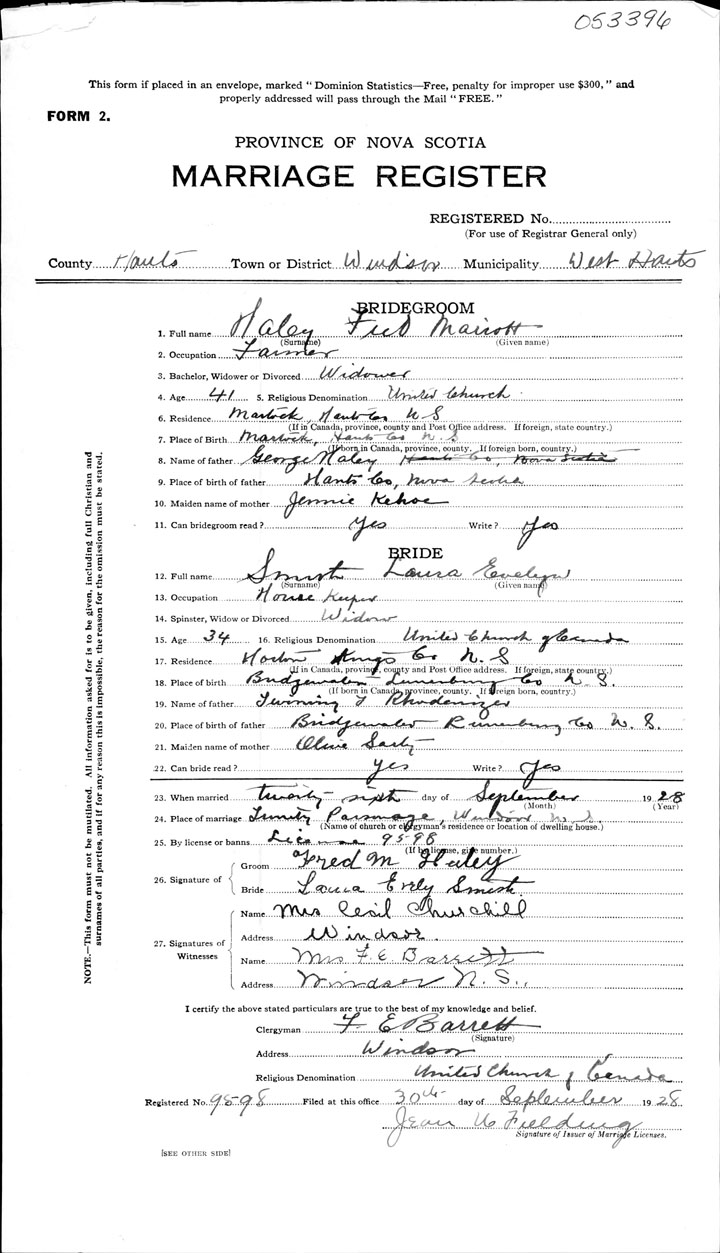 053396
This form if placed in an envelope, marked "Dominion Statistics—Free, penalty for improper use $300," and
properly addressed will pass through the Mail "FREE."
FORM 2.
PROVINCE OF NOVA SCOTIA
MARRIAGE REGISTER
REGISTERED No.
(For use of Registrar General only)
County Hants Town or District Windsor Municipality West Hants
BRIDEGROOM
1. Full name Haley Fred
(Surname) (Given name)
2. Occupation Farmer
3. Bachelor, Widower or Divorced Widower
4. Age 41 5. Religious Denomination United Church
6. Residence Martock, Hants Co N S
(If in Canada, province, county and Post Office address. If foreign, state country.)
7. Place of Birth Martock, Hants Co N. S
(If born in Canada, province, county. If foreign born, country.)
8. Name of father George Haley Hants Co, Nova Scotia
9. Place of birth of father Hants Co, Nova Scotia
10. Maiden name of mother Jennie Kehoe
11. Can bridegroom read? Yes Write? Yes
BRIDE
12. Full name Laura Evelyn
(Surname) (Given name)
13. Occupation House Keeper
14. Spinster, Widow or Divorced Widow
15. Age 34 16. Religious Denomination United Church of Canada
17. Residence Horton Kings Co N. S
(If in Canada, province, county and Post Office address. If foreign, state country.)
18. Place of birth Bridgewater Lunenburg Co N. S.
(If born in Canada, province, county. If foreign born, country.)
19. Name of father
20. Place of birth of father Bridgewater Lunenburg Co N. S.
21. Maiden name of mother Olive
22. Can bride read? Yes Write? Yes
23. When married twenty sixth day of September 1928
(Month) (Year)
24. Place of marriage Trinity Parsonage, Windsor N. S.
(Name of church or clergyman's residence or location of dwelling house.)
25. By license or banns License 9598
(If by license, give number.)
26. Signature of
Groom Fred M Haley
Bride Laura
27. Signatures of Witnesses
Name Mrs Cecil Churchill
Address Windsor.
Name Mrs F. E Barrett
Address Windsor N. S.,
I certify the above stated particulars are true to the best of my knowledge and belief.
Clergyman F. E Barrett
(Signature)
Address Windsor
Religious Denomination United Church of Canada
Registered No. 9598 Filed at this office 30th day of September 1928
Jean Fielding
Signature of Issuer of Marriage Licenses.
(SEE OTHER SIDE)
NOTE.—This form must not be mutilated. All information asked for is to be given, including full Christian and
surnames of all parties, and if for any reason this is impossible, the reason for the omission must be stated.